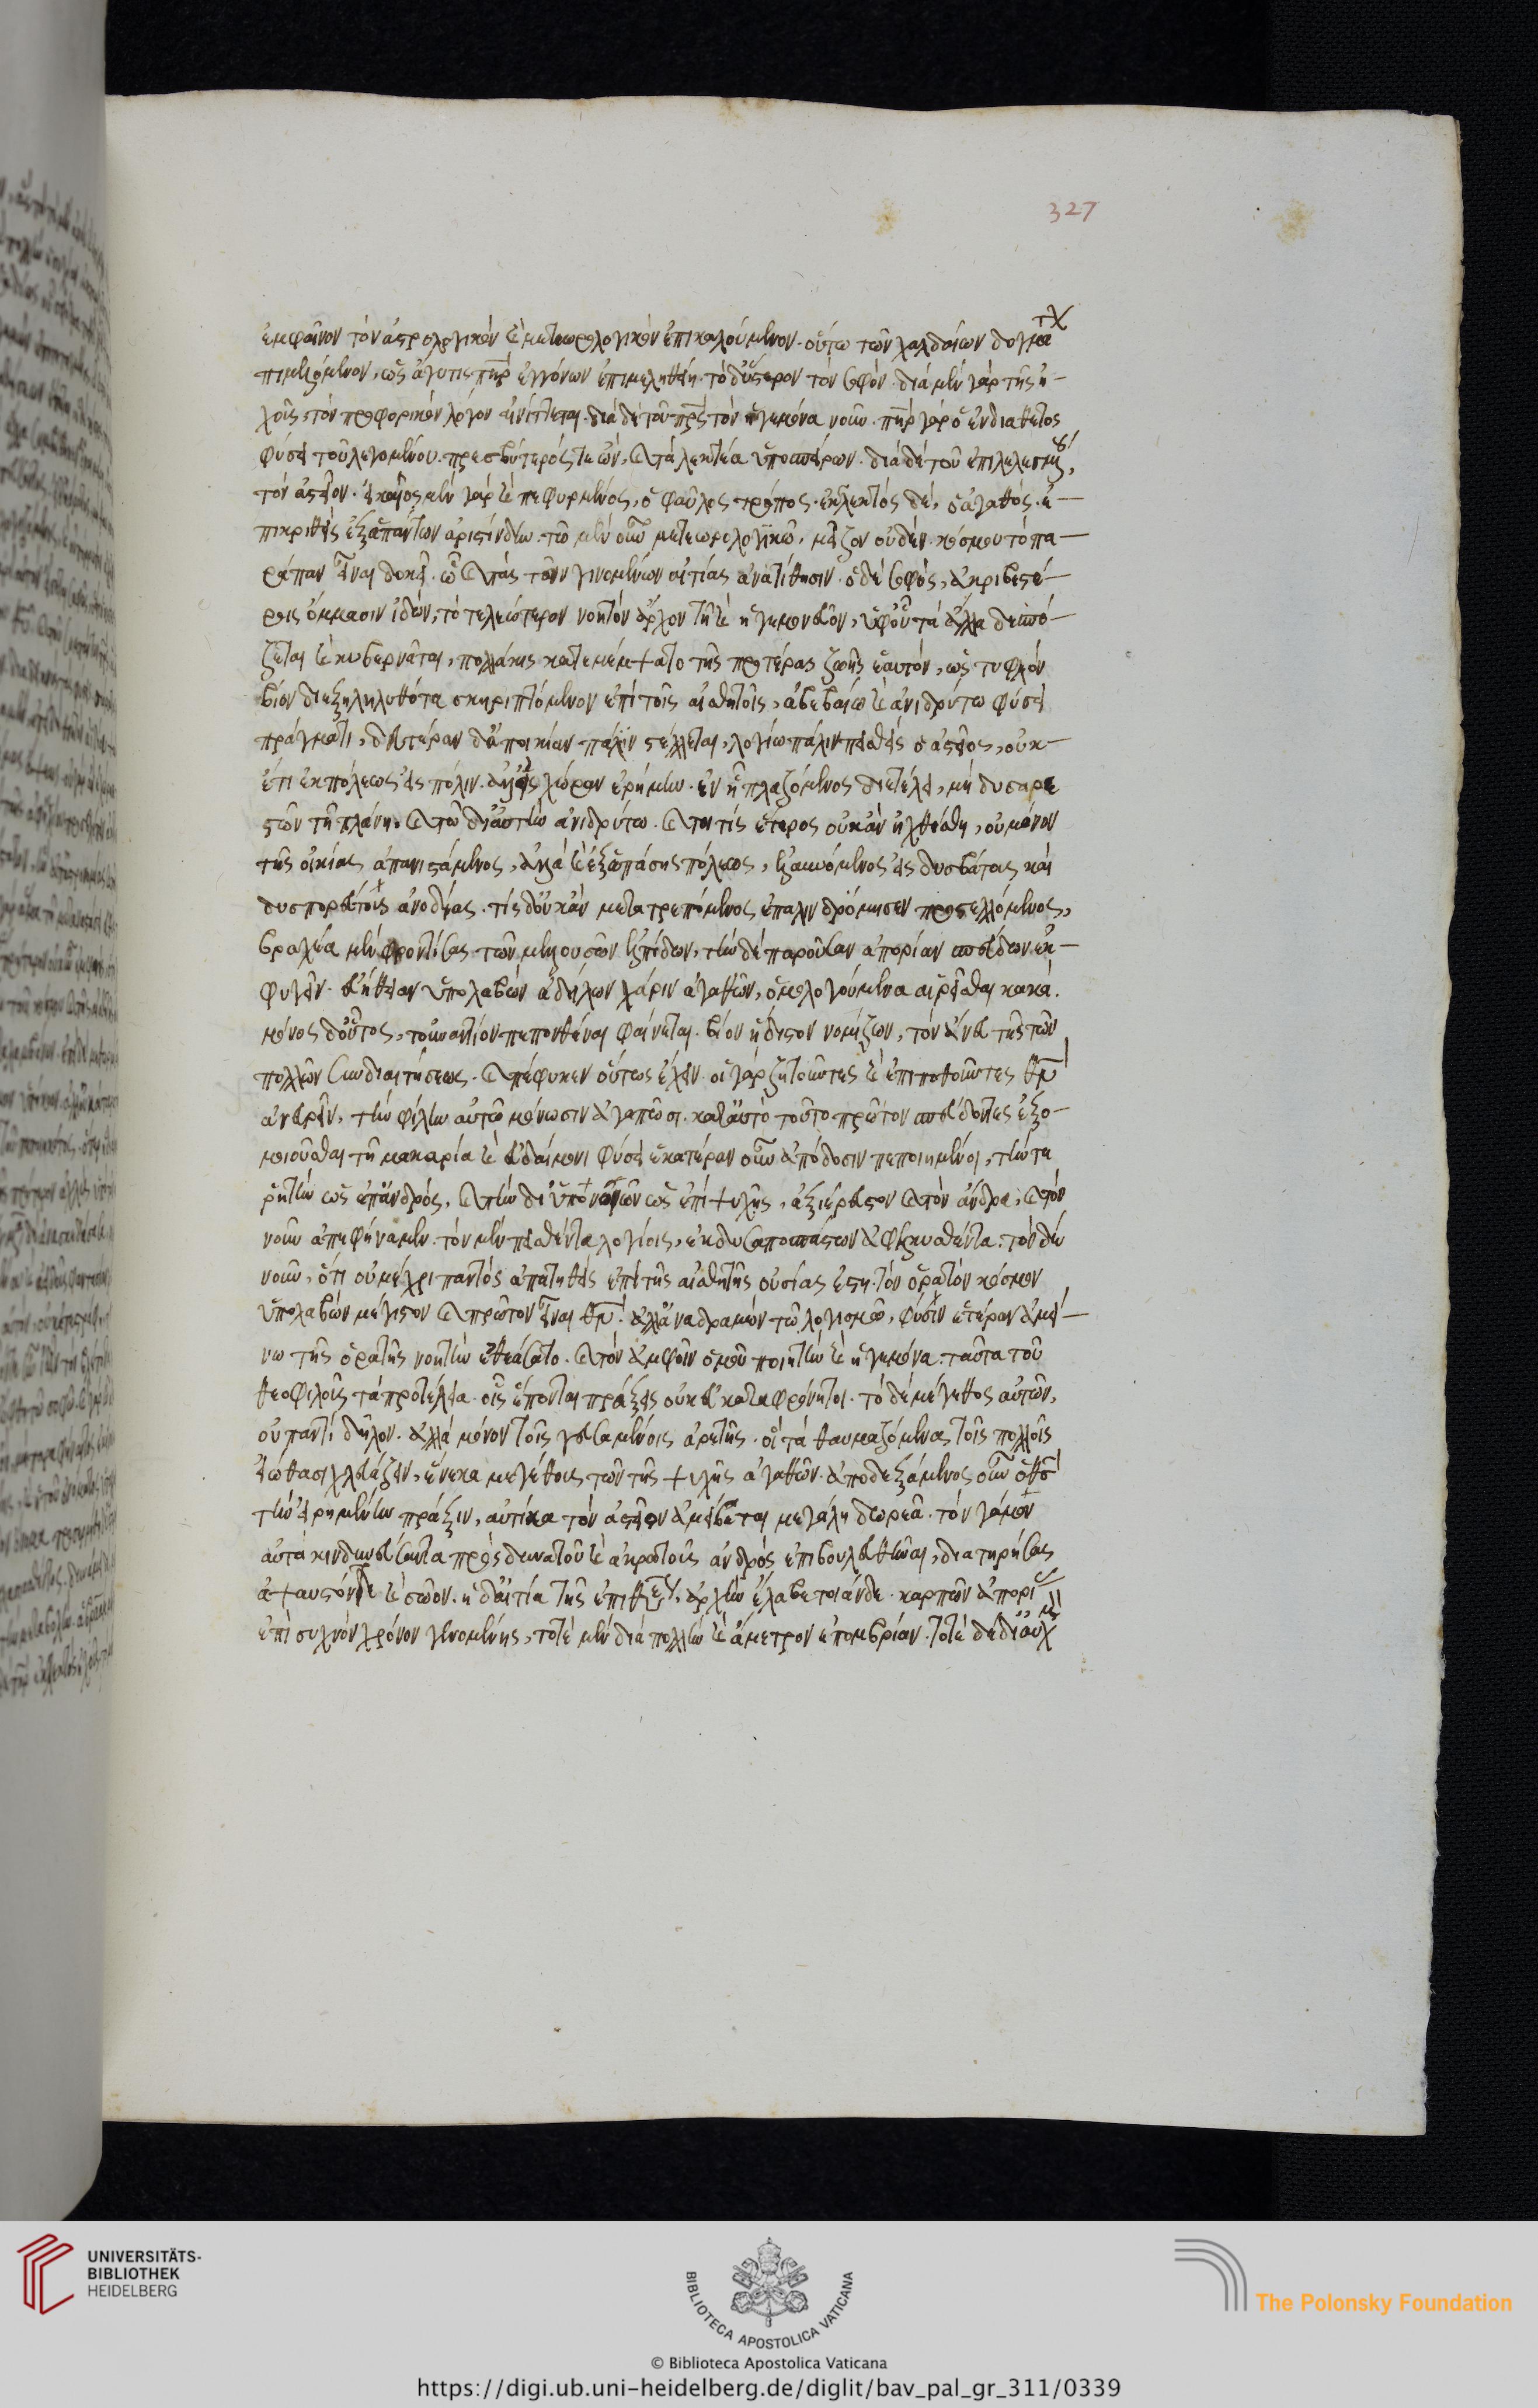 327
ἐμφαῖνον τὸν ἀστρολογικὸν καὶ μετεωρολογικὸν ἐπικαλούμενον. οὕτω τῶν χαλδαίων δογμάτων
ως ἄν τις πατὴρ ἐγγόνων ἐπιμεληθείη. τὸ δεύτερον τὸν σοφόν. διὰ μὲν γὰρ τῆς ἠ-
χοῦς, τὸν προφορικὸν λόγον αἰνίττεται. διὰ δὲ τοῦ πατρὸς τὸν ἡγεμόνα νοῦν. πατὴρ γὰρ ὁ ἐνδιάθετος
φύσει τοῦ γεγωνοῦ. πρεσβύτερός τε ὢν, καὶ τὰ λεκτέα ὑποσπείρων. διὰ δὲ τοῦ ἐπιλέκτου
τὸν ἀστεῖον. εἰκαῖος μὲν γὰρ καὶ πεφυρμένος, ὁ φαῦλος τρόπος. ἐκλεκτὸς δὲ, ὁ ἀγαθός. ἐ-
πικριθεὶς ἐξ ἁπάντων ἀριστίνδην. τῷ μὲν οὖν μετεωρολογικῷ, μεῖζον οὐδὲν κόσμου τὸ πα-
ράπαν εἶναι δοκεῖ. ᾧ καὶ τὰς τῶν γινομένων αἰτίας ἀνατίθησιν. ὁ δὲ σοφὸς, ἀκριβεστέ-
ροις ὄμμασιν ἰδών, τὸ τελεώτερον νοητὸν ἄρχον τε καὶ ἡγεμονεῦον, ὑφ' οὗ τὰ ἄλλα δεσπό-
ζεται καὶ κυβερνᾶται, πολλάκις κατεμέμψατο τῆς προτέρας ζωῆς ἑαυτὸν, ὡς τυφλὸν
βίον διεξεληλυθότα σκηριπτόμενον ἐπὶ τοῖς αἰσθητοῖς, ἀβεβαίῳ καὶ ἀνιδρύτῳ φύσει
πράγματι, δευτέραν δ' ἀποικίαν πάλιν στέλλεται, λογίῳ πάλιν πεισθεὶς ὁ ἀστεῖος, οὐκ-
έτι ἐκ πόλεως εἰς πόλιν. ἀλλ' εἰς χώραν ἐρήμην. ἐν ᾗ πλαζόμενος διετέλει, μὴ δυσαρε
στῶν τῇ πλάνῃ. καὶ τῷ δι' αὐτὴν ἀνιδρύτῳ. καί τοι τίς ἕτερος οὐκ ἂν ἠχθέσθη, οὐ μόνον
τῆς οἰκίας ἀπανιστάμενος, ἀλλὰ καὶ ἐξ ἁπάσης πόλεως, ἐξελαυνόμενος εἰς δυσβάτους καὶ
δυσπορεύτους ἀνοδίας. τίς δ' οὐκ ἂν μετατρεπόμενος ἐπαλινδρόμησεν
βραχέα μὲν φροντίσας τῶν μελλουσῶν ἐλπίδων, τὴν δὲ παροῦσαν ἀπορίαν σπεύδων ἐκ-
φυγεῖν. εὐήθειαν ὑπολαβὼν ἀδήλων χάριν ἀγαθῶν, ὁμολογούμενα αἱρεῖσθαι κακά.
μόνος δ' οὗτος, τοὐναντίον πεπονθέναι φαίνεται. βίον ἥδιστον νομίζων, τὸν ἄνευ τῆς τῶν
πολλῶν συνδιαιτήσεως. καὶ πέφυκεν οὕτως ἔχειν. οἱ γὰρ ζητοῦντες καὶ ἐπιποθοῦντες θν
ἀνευρεῖν, τὴν φίλην αὐτῷ μόνωσιν ἀγαπῶσι. κατ' αὐτὸ τοῦτο πρῶτον σπεύδοντες ἐξο-
μοιοῦσθαι τῇ μακαρίᾳ καὶ εὐδαίμονι φύσει. ἑκατέραν οὖν ἀπόδοσιν πεποιημένοι, τήν τε
ῥητὴν ὡς ἐπ' ἀνδρὸς, καὶ τὴν δι' ὑπονοιῶν ὡς ἐπὶ ψυχῆς, ἀξιέραστον καὶ τὸν ἄνδρα, καὶ τὸν
νοῦν ἀπεφήναμεν. τὸν μὲν πεισθέντα λογίοις, ἐκ δυσαποσπάστων ἀφελκυσθέντα. τὸν δὲ
νοῦν, ὅτι οὐ μέχρι παντὸς ἀπατηθεὶς ἐπὶ τῆς αἰσθητῆς οὐσίας ἔστη. τὸν ὁρατὸν κόσμον
ὑπολαβὼν μέγιστον καὶ πρῶτον εἶναι θν. ἀλλὰ ἀναδραμὼν τῷ λογισμῷ, φύσιν ἑτέραν ἀμεί-
νω τῆς ὁρατῆς νοητὴν ἐθεάσατο. καὶ τὸν ἀμφοῖν ὁμοῦ ποιητὴν καὶ ἡγεμόνα. ταῦτα τοῦ
θεοφιλοῦς τὰ προτέλεια. οἷς ἕπονται πράξεις οὐκ εὐκαταφρόνητοι. τὸ δὲ μέγεθος αὐτῶν,
οὐ παντὶ δῆλον. ἀλλὰ μόνον τοῖς γευσαμένοις ἀρετῆς. οἳ τὰ θαυμαζόμενα τοῖς πολλοῖς
εἰώθασι χλευάζειν, ἕνεκα μεγέθους τῶν τῆς ψυχῆς ἀγαθῶν. ἀποδεξάμενος οὖν ὁ θς
τὴν εἰρημένην πρᾶξιν, αὐτίκα τὸν ἀστεῖον ἀμείβεται μεγάλῃ δωρεᾷ. τὸν γάμον
αὐτὰ κινδυνεύσαντα πρὸς δυνατοῦ καὶ ἀκρατοῦς ἀνδρὸς ἐπιβουλευθῆναι, διατηρήσας
ἄψαυστόν τε καὶ σῶον. ἡ δ' αἰτία τῆς ἐπιθέσεως, ἀρχὴν ἔλαβε τοιάνδε. καρπῶν ἀφορίας
ἐπὶ συχνὸν χρόνον γενομένης, τοτὲ μὲν διὰ πολλὴν καὶ ἄμετρον ἐπομβρίαν. τοτὲ δὲ δι' αὐχμὸν
UNIVERSITÄTS-
BIBLIOTHEK
HEIDELBERG
BIBLIOTECA APOSTOLICA VATICANA
© Biblioteca Apostolica Vaticana
The Polonsky Foundation
https://digi.ub.uni-heidelberg.de/diglit/bav_pal_gr_311/0339